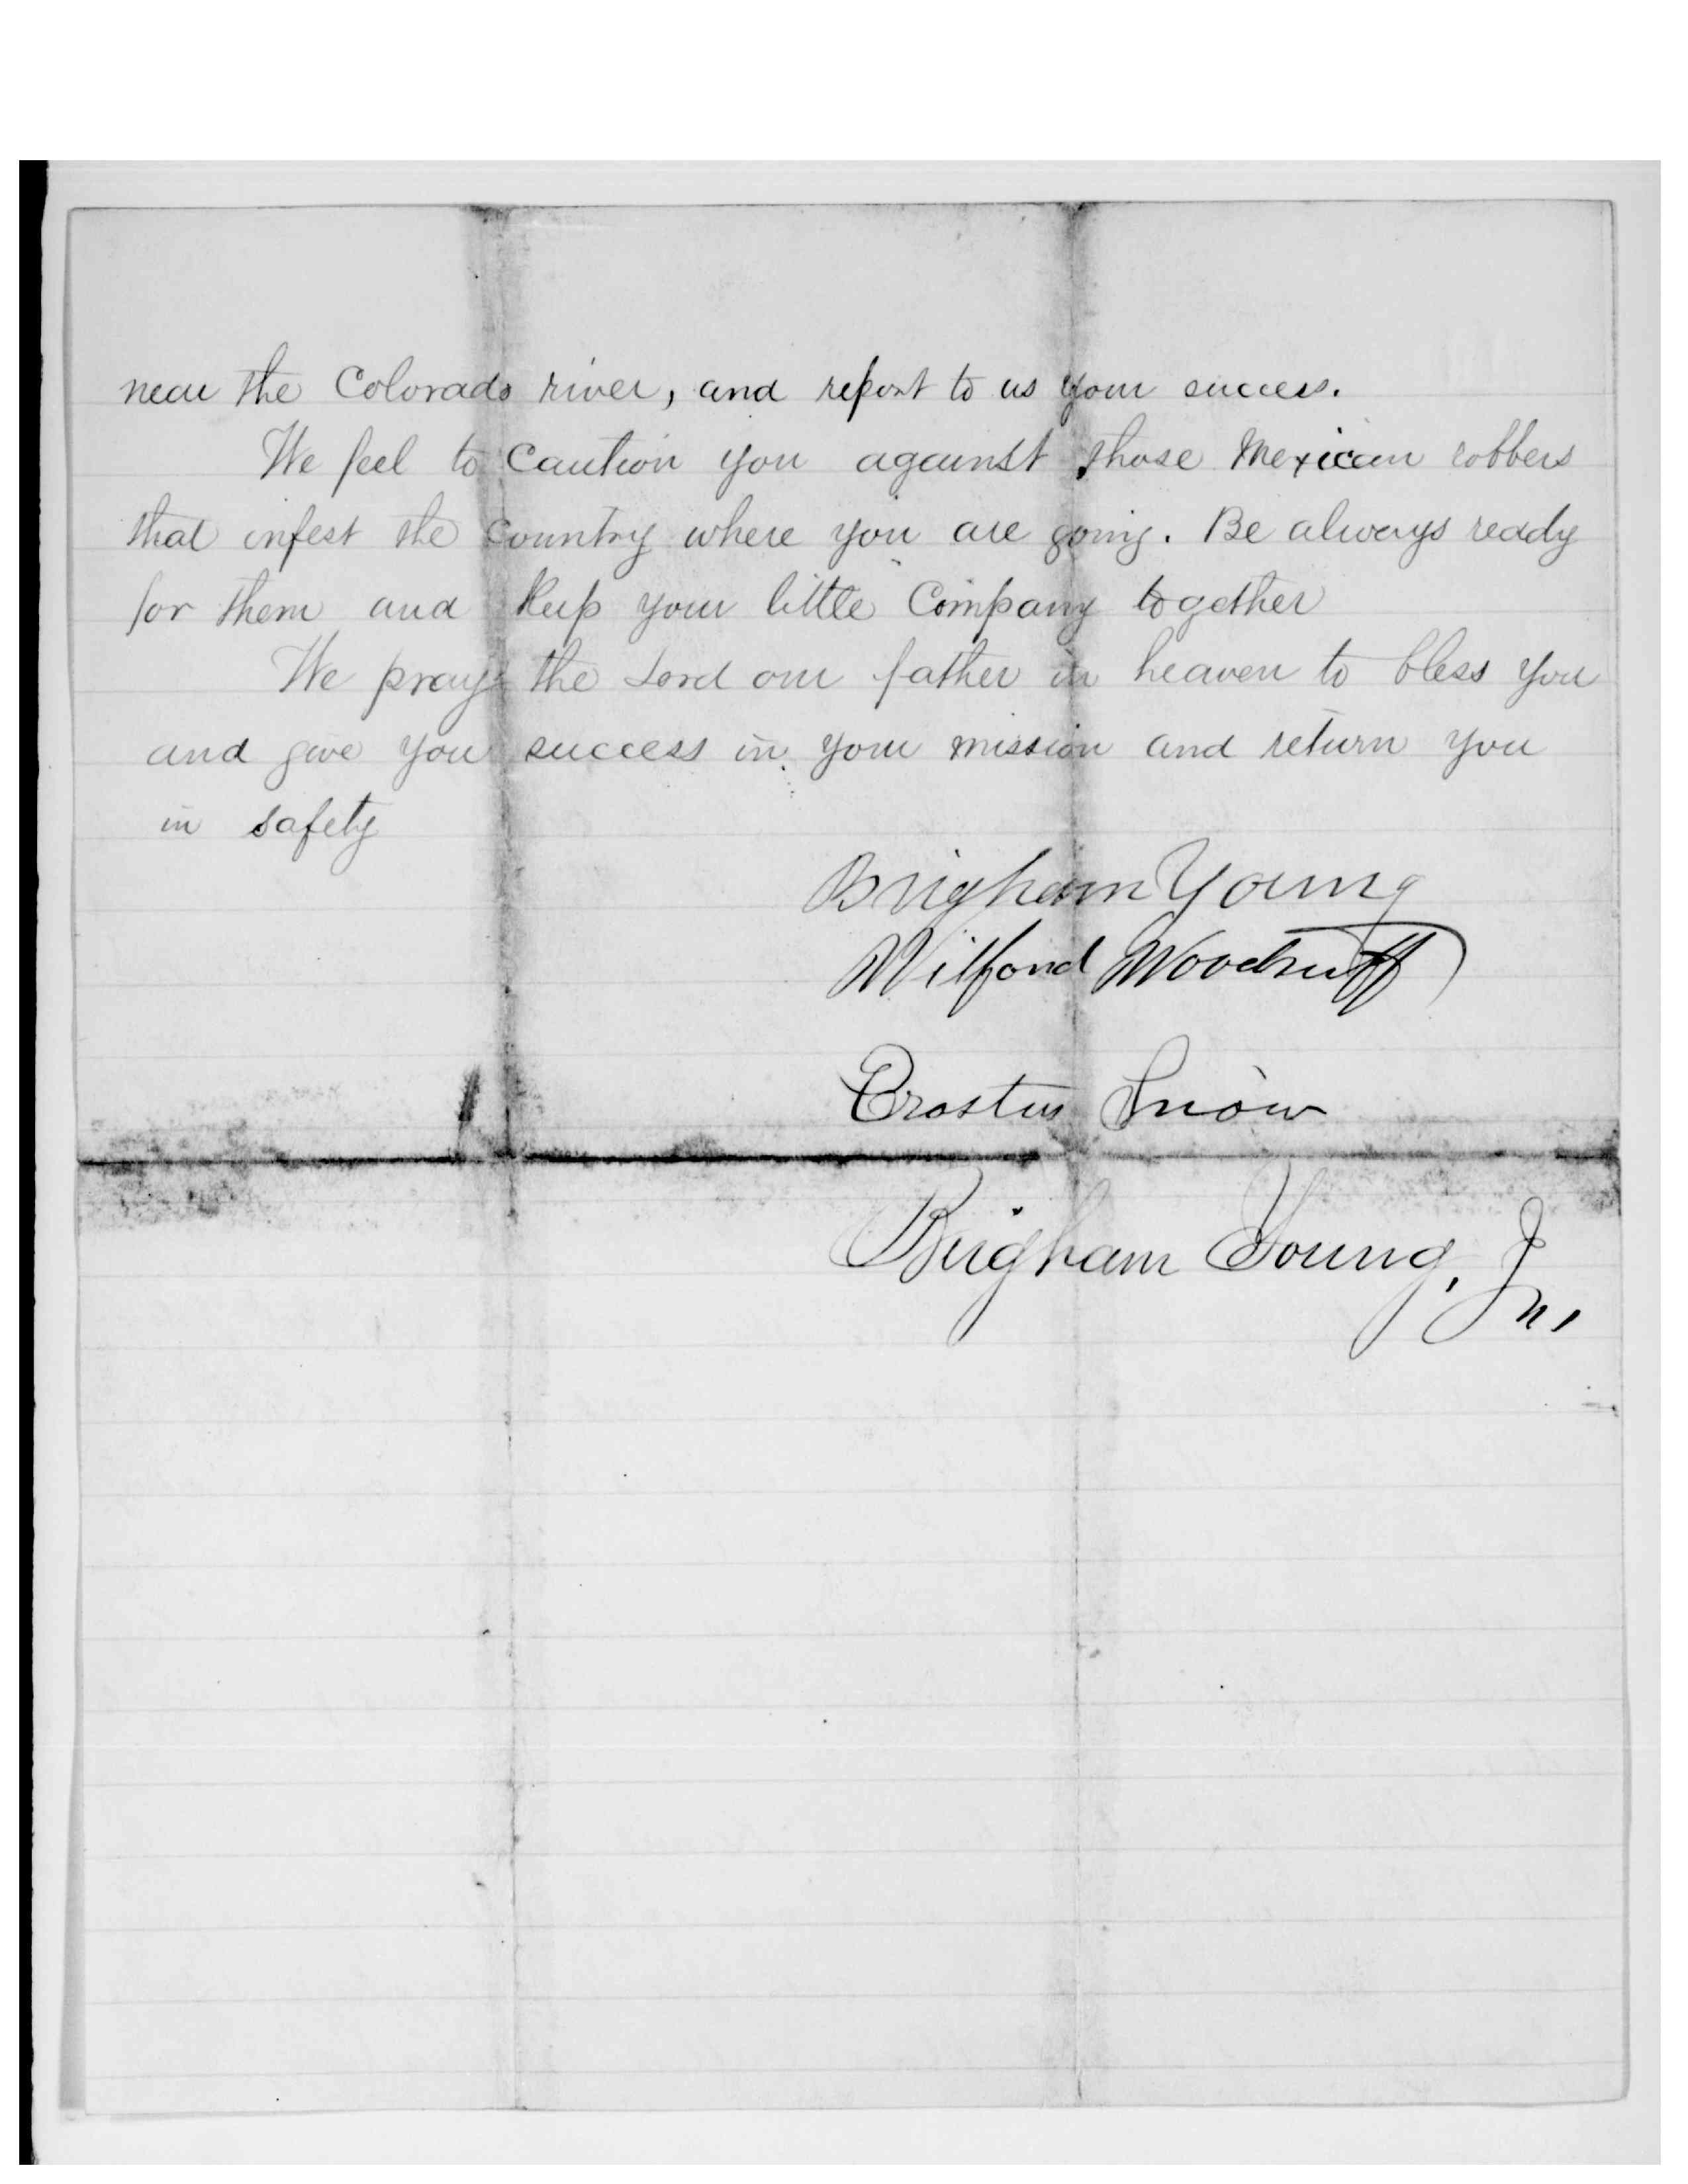 near the Colorado river, and report to us your success.
We feel to caution you against those Mexican robbers
that infest the country where you are going. Be always ready
for them and keep your little Company together
We pray the Lord our father in heaven to bless you
and give you success in your mission and return you
in safety
Brigham Young
Wilford Woodruff
Erastus Snow
Brigham Young, Jr.